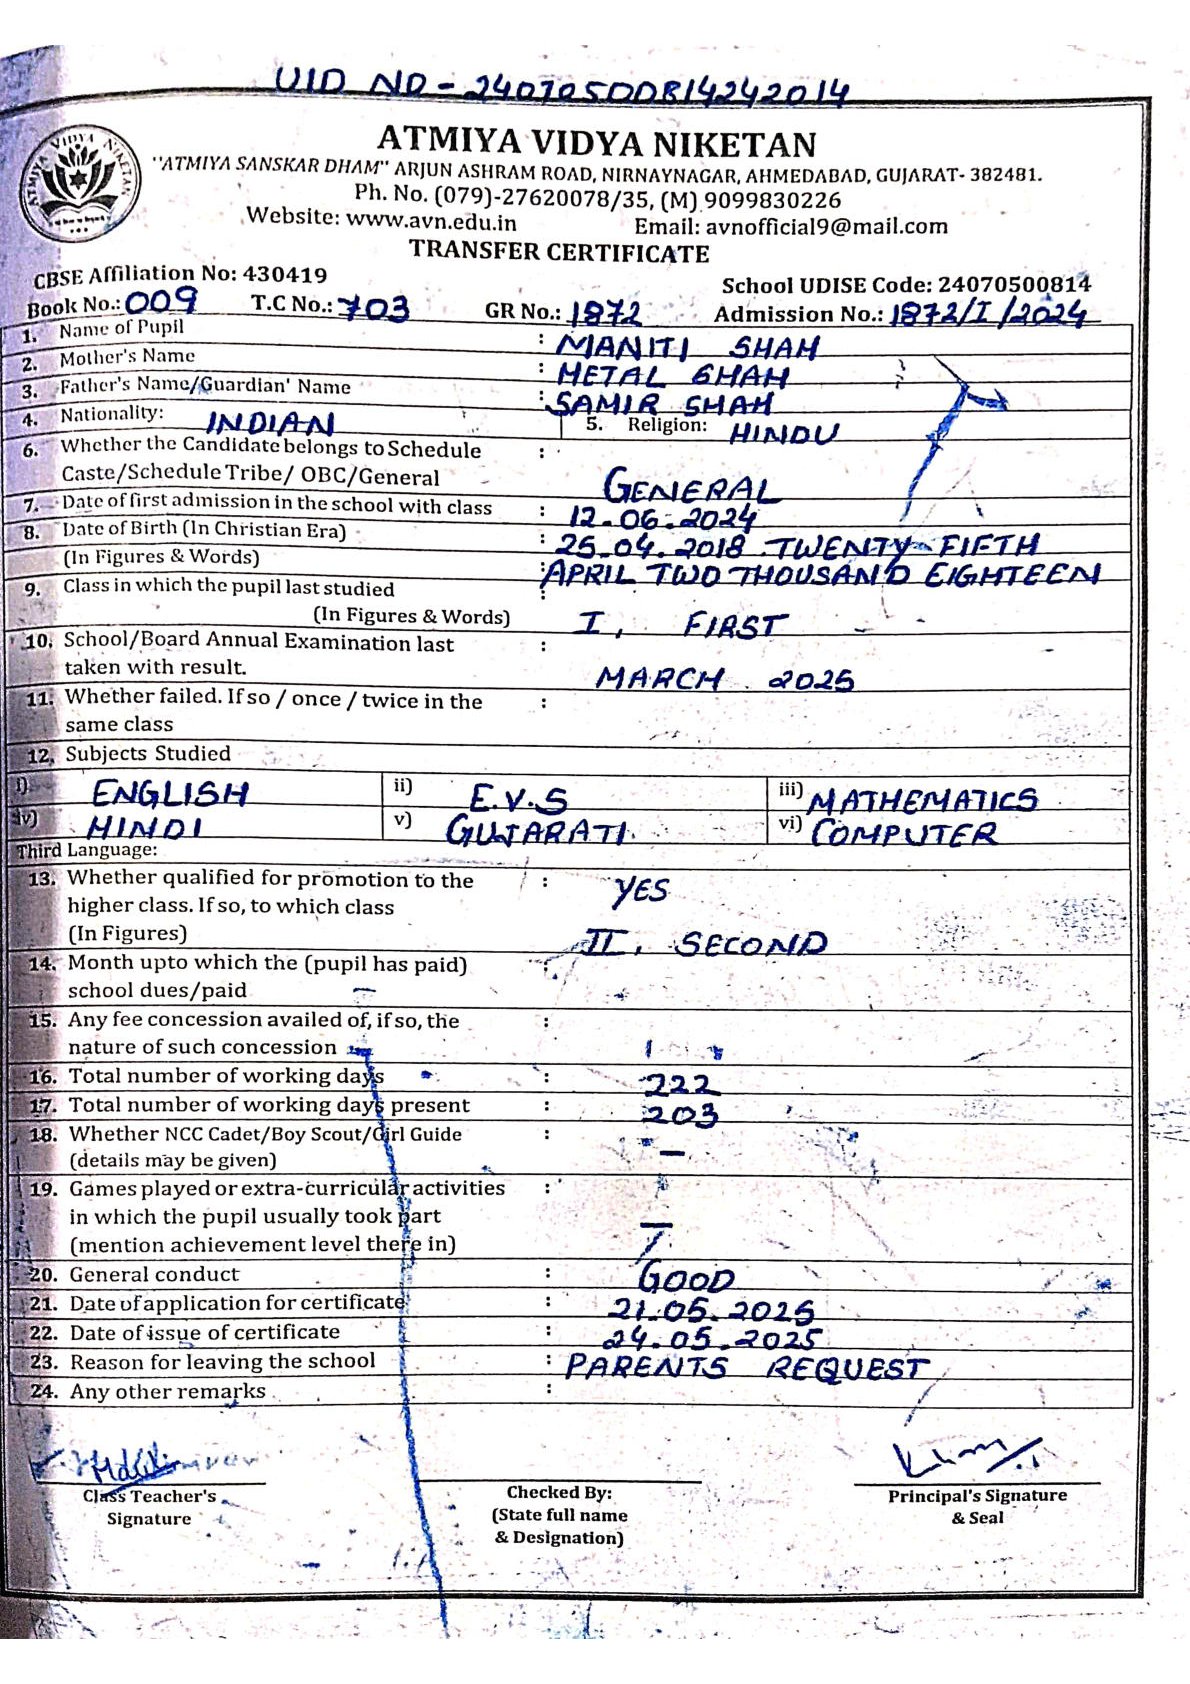 UID NO - 24070500814242014
ATMIYA VIDYA NIKETAN
ATMIYA VIDYA NIKETAN
"ATMIYA SANSKAR DHAM" ARJUN ASHRAM ROAD, NIRNAYNAGAR, AHMEDABAD, GUJARAT- 382481.
Ph. No. (079)-27620078/35, (M) 9099830226
Website: www.avn.edu.in Email: avnofficial9@mail.com
TRANSFER CERTIFICATE
CBSE Affiliation No: 430419 School UDISE Code: 24070500814
Book No.: 009 T.C No.: 703 GR No.: 1872 Admission No.: 1872/I/2024
1. Name of Pupil : MANITI SHAH
2. Mother's Name : HETAL SHAH
3. Father's Name/Guardian' Name : SAMIR SHAH
4. Nationality: INDIAN 5. Religion: HINDU
6. Whether the Candidate belongs to Schedule :
Caste/Schedule Tribe/ OBC/General GENERAL
7. Date of first admission in the school with class : 12.06.2024
8. Date of Birth (In Christian Era) : 25.04.2018 TWENTY-FIFTH
(In Figures & Words) : APRIL TWO THOUSAND EIGHTEEN
9. Class in which the pupil last studied :
(In Figures & Words) I, FIRST
10. School/Board Annual Examination last :
taken with result. MARCH 2025
11. Whether failed. If so / once / twice in the :
same class
12. Subjects Studied
i) ENGLISH ii) E.V.S iii) MATHEMATICS
iv) HINDI v) GUJARATI vi) COMPUTER
Third Language:
13. Whether qualified for promotion to the : YES
higher class. If so, to which class
(In Figures) II, SECOND
14. Month upto which the (pupil has paid) :
school dues/paid
15. Any fee concession availed of, if so, the :
nature of such concession
16. Total number of working days : 222
17. Total number of working days present : 203
18. Whether NCC Cadet/Boy Scout/Girl Guide :
(details may be given) —
19. Games played or extra-curricular activities :
in which the pupil usually took part
(mention achievement level there in) —
20. General conduct : GOOD
21. Date of application for certificate : 21.05.2025
22. Date of issue of certificate : 24.05.2025
23. Reason for leaving the school : PARENTS REQUEST
24. Any other remarks :
Class Teacher's Checked By: Principal's Signature
Signature (State full name & Seal
& Designation)